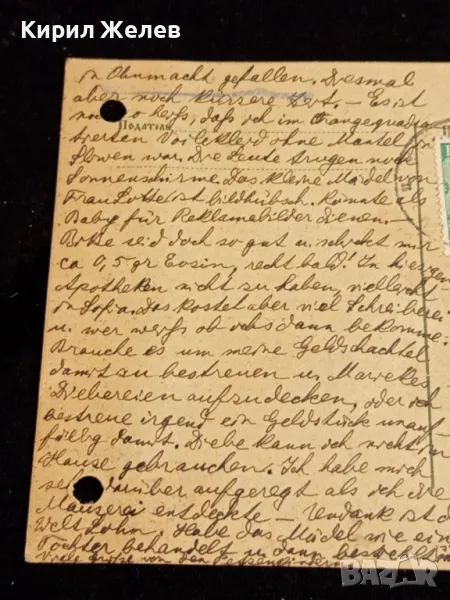 Кирил Желев
in Ohnmacht gefallen. Diesmal
aber noch kürzere Zeit. – Es ist
so heiß, daß ich im orangequadra
Податель
trierten Voilekleid ohne Mantel bei
war. Die Leute trugen noch
Sonnenschirme. Das kleine Mädel von
Frau Lotte ist bildhübsch. Könnte als
Baby für Reklamebilder dienen. –
Bitte seid doch so gut u. schickt mir
ca 0,5 gr Eosin, recht bald! In hiesigen
Apotheken nicht zu haben, vielleicht
in Sofia. Das kostet aber viel Schreiberei
u. wer weiß ob ichs dann bekomme.
Brauche es um meine Geldschachtel
damit zu bestreuen u. Diebereien aufzudecken, oder ich
bestreue irgend ein Geldstück unauf-
fällig damit. Diebe kann ich nicht im
Hause gebrauchen. Ich habe mich
sehr darüber aufgeregt als ich die
Mauserei entdeckte – Undank ist der
Welt Lohn – Habe das Mädel wie eine
Tochter behandelt u. dann bestiehlt
Viele Grüße von den
bazar.bg